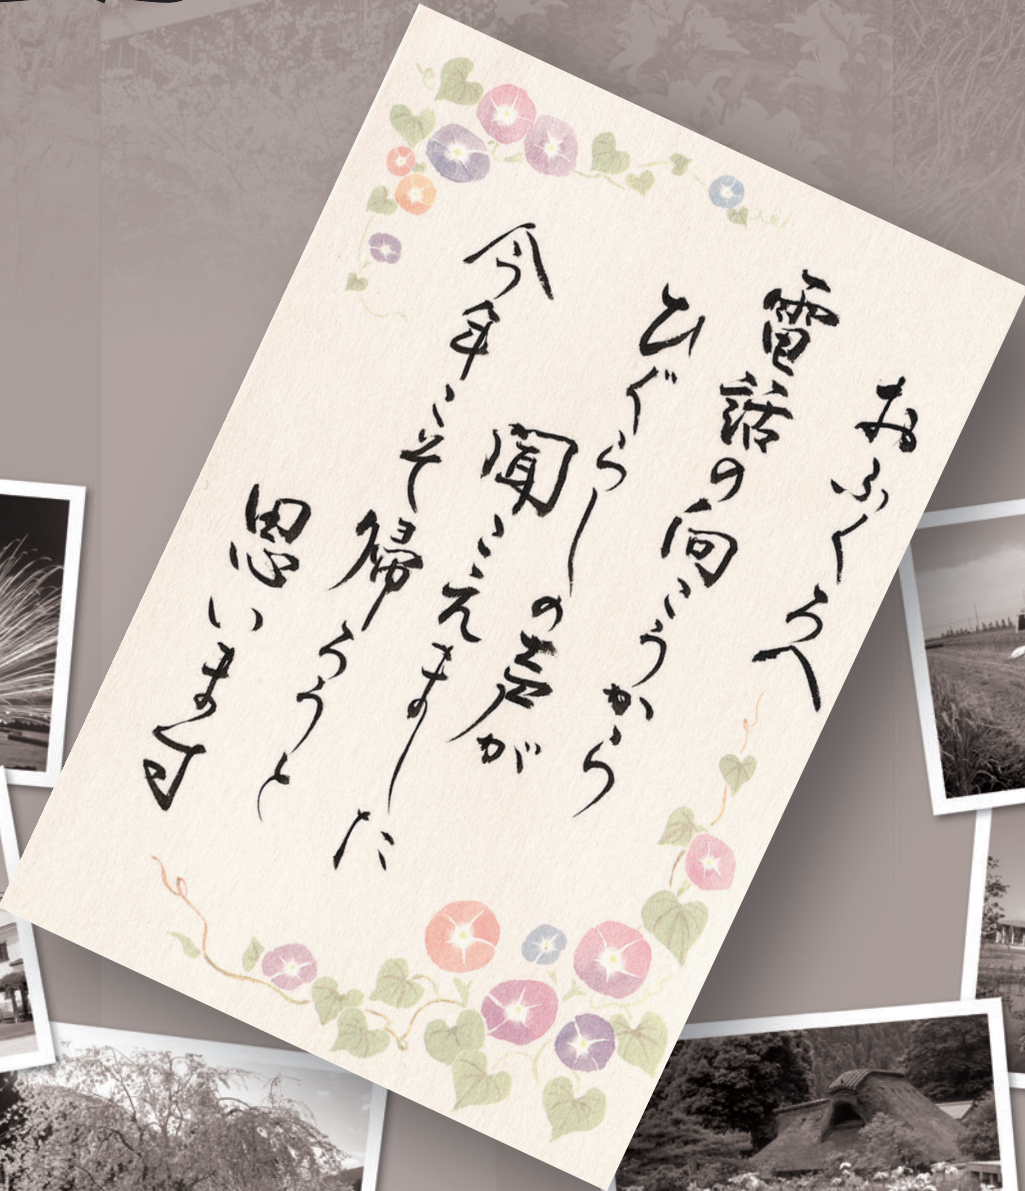 おふくろへ
電話の向こうから
ひぐらしの声が
聞こえました
今年こそ帰ろうと
思います